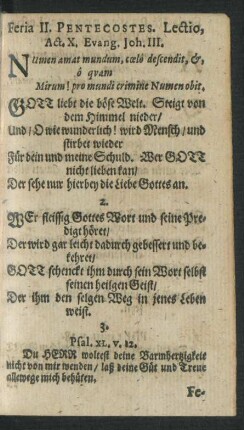 Feria II. PENTECOSTES. Lectio,
Act. X. Evang. Joh. III.
NUmen amat mundum, cœlo descendit, &, ô quam
Mirum! pro mundi crimine Numen obit.
GOTT liebt die böse Welt. Steigt von
dem Himmel nieder/
Und/ O wie wunderlich! wird Mensch/ und
stirbet wieder
Für dein und meine Schuld. Wer GOTT
nicht lieben kan/
Der sehe nur hierbey die Liebe Gottes an.
2.
WEr fleissig Gottes Wort und seine Pre-
digt höret/
Der wird gar leicht dadurch gebessert und be-
kehret/
GOTT schenckt ihm durch sein Wort selbst
seinen heilgen Geist/
Der ihm den selgen Weg in jenes Leben
weist.
3.
Psal. XL. v. 12.
Du HERR wollest deine Barmhertzigkeit
nicht von mir wenden/ laß deine Güt und Treue
allewege mich behüten.
Fe-